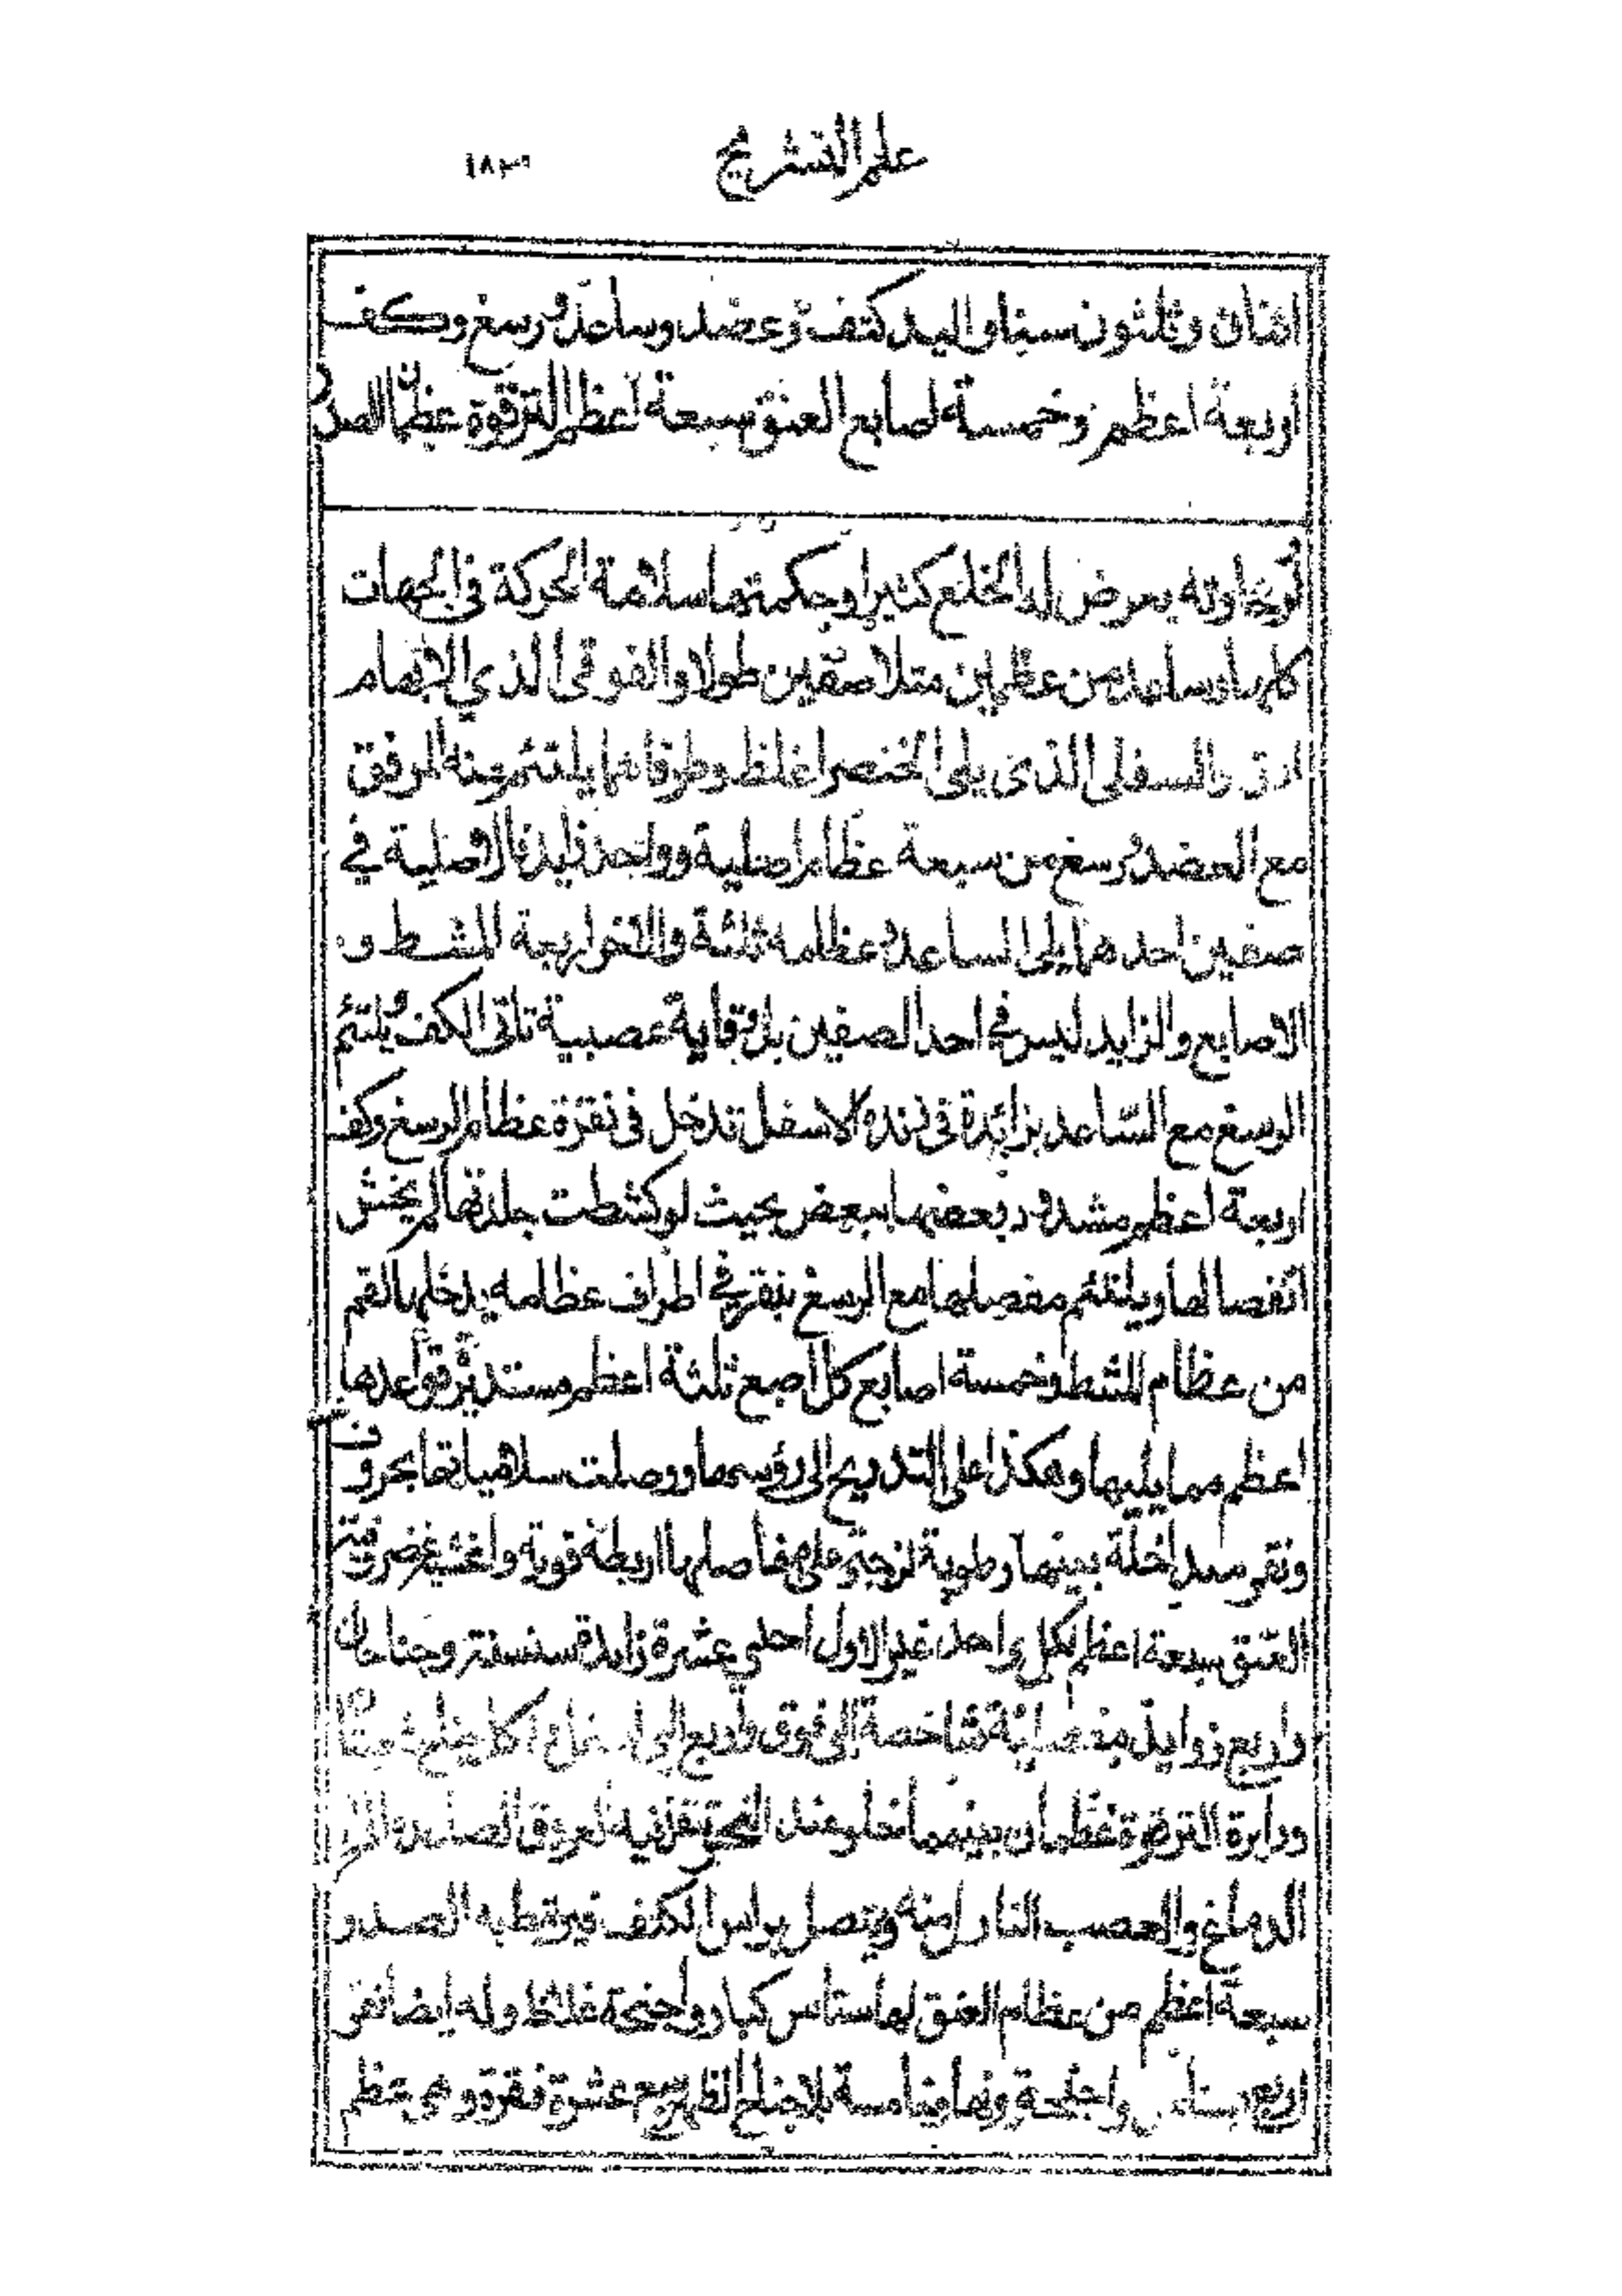 علم التشريح ١٨٣
اثنان وثلثون سنا واليد كتف وعضد وساعد ورسغ وكف
اربعة اعظم وخمسة اصابع العنق سبعة اعظم الترقوة عظمان الصدر
يعرض له الخلع كثيرا وحكمتها سلامة الحركة في الجهات
كلها وساعد من عظمين متلاصقين طولا والفوقى الذي الابهام
ادق والسفلى الذى يلى الخنصر اغلظ وطرفاهما يلتئم منه المرفق
مع العضد ورسغ من سبعة عظام اصلية وواحد زايد فالاصلية في
صفين احدهما يلى الساعد وعظامه ثلثة والاخر اربعة المشط و
الاصابع والزايد ليس في احد الصفين بل وقاية عصبية تاتى الكف ويلتئم
الرسغ مع الساعد بزائدة فى زنده الاسفل تدخل فى نقرة عظام الرسغ وكف
اربعة اعظم مشدود بعضها ببعض بحيث لو كشطت جلدتها لم يخش
انفصالها ويلتئم مفصلها مع الرسغ بنقر في اطراف عظامه يدخلها لقم
من عظام المشط وخمسة اصابع كل اصبع ثلثة اعظم مستديرة قواعدها
اعظم مما يليها وهكذا على التدريج الى رؤسها ووصلت سلامياتها بحروف
ونقر متداخلة بينها رطوبة لزجة وعلى مفاصلها اربطة قوية واغشية غضروفية
العنق سبعة اعظم لكل واحد غير الاول احدى عشرة زايدة سنسنة وجناحان
واربع زوايد مفصلية شاخصة الى فوق واربع الى اسفل
ودايرة الترقوة عظمان بينهما خلو عند النحر تنفذ فيه العروق الصاعدة الى
الدماغ والعصب النازل منه ويتصل براس الكتف فيرتبط به الصدر
سبعة اعظم من عظام العنق لها سناس كبار واجنحة غلاظ وله ايضا فقر
اربع سناس واجنحة وخامسة بلا جناح الظهر سبع عشرة فقرة وهى عظم